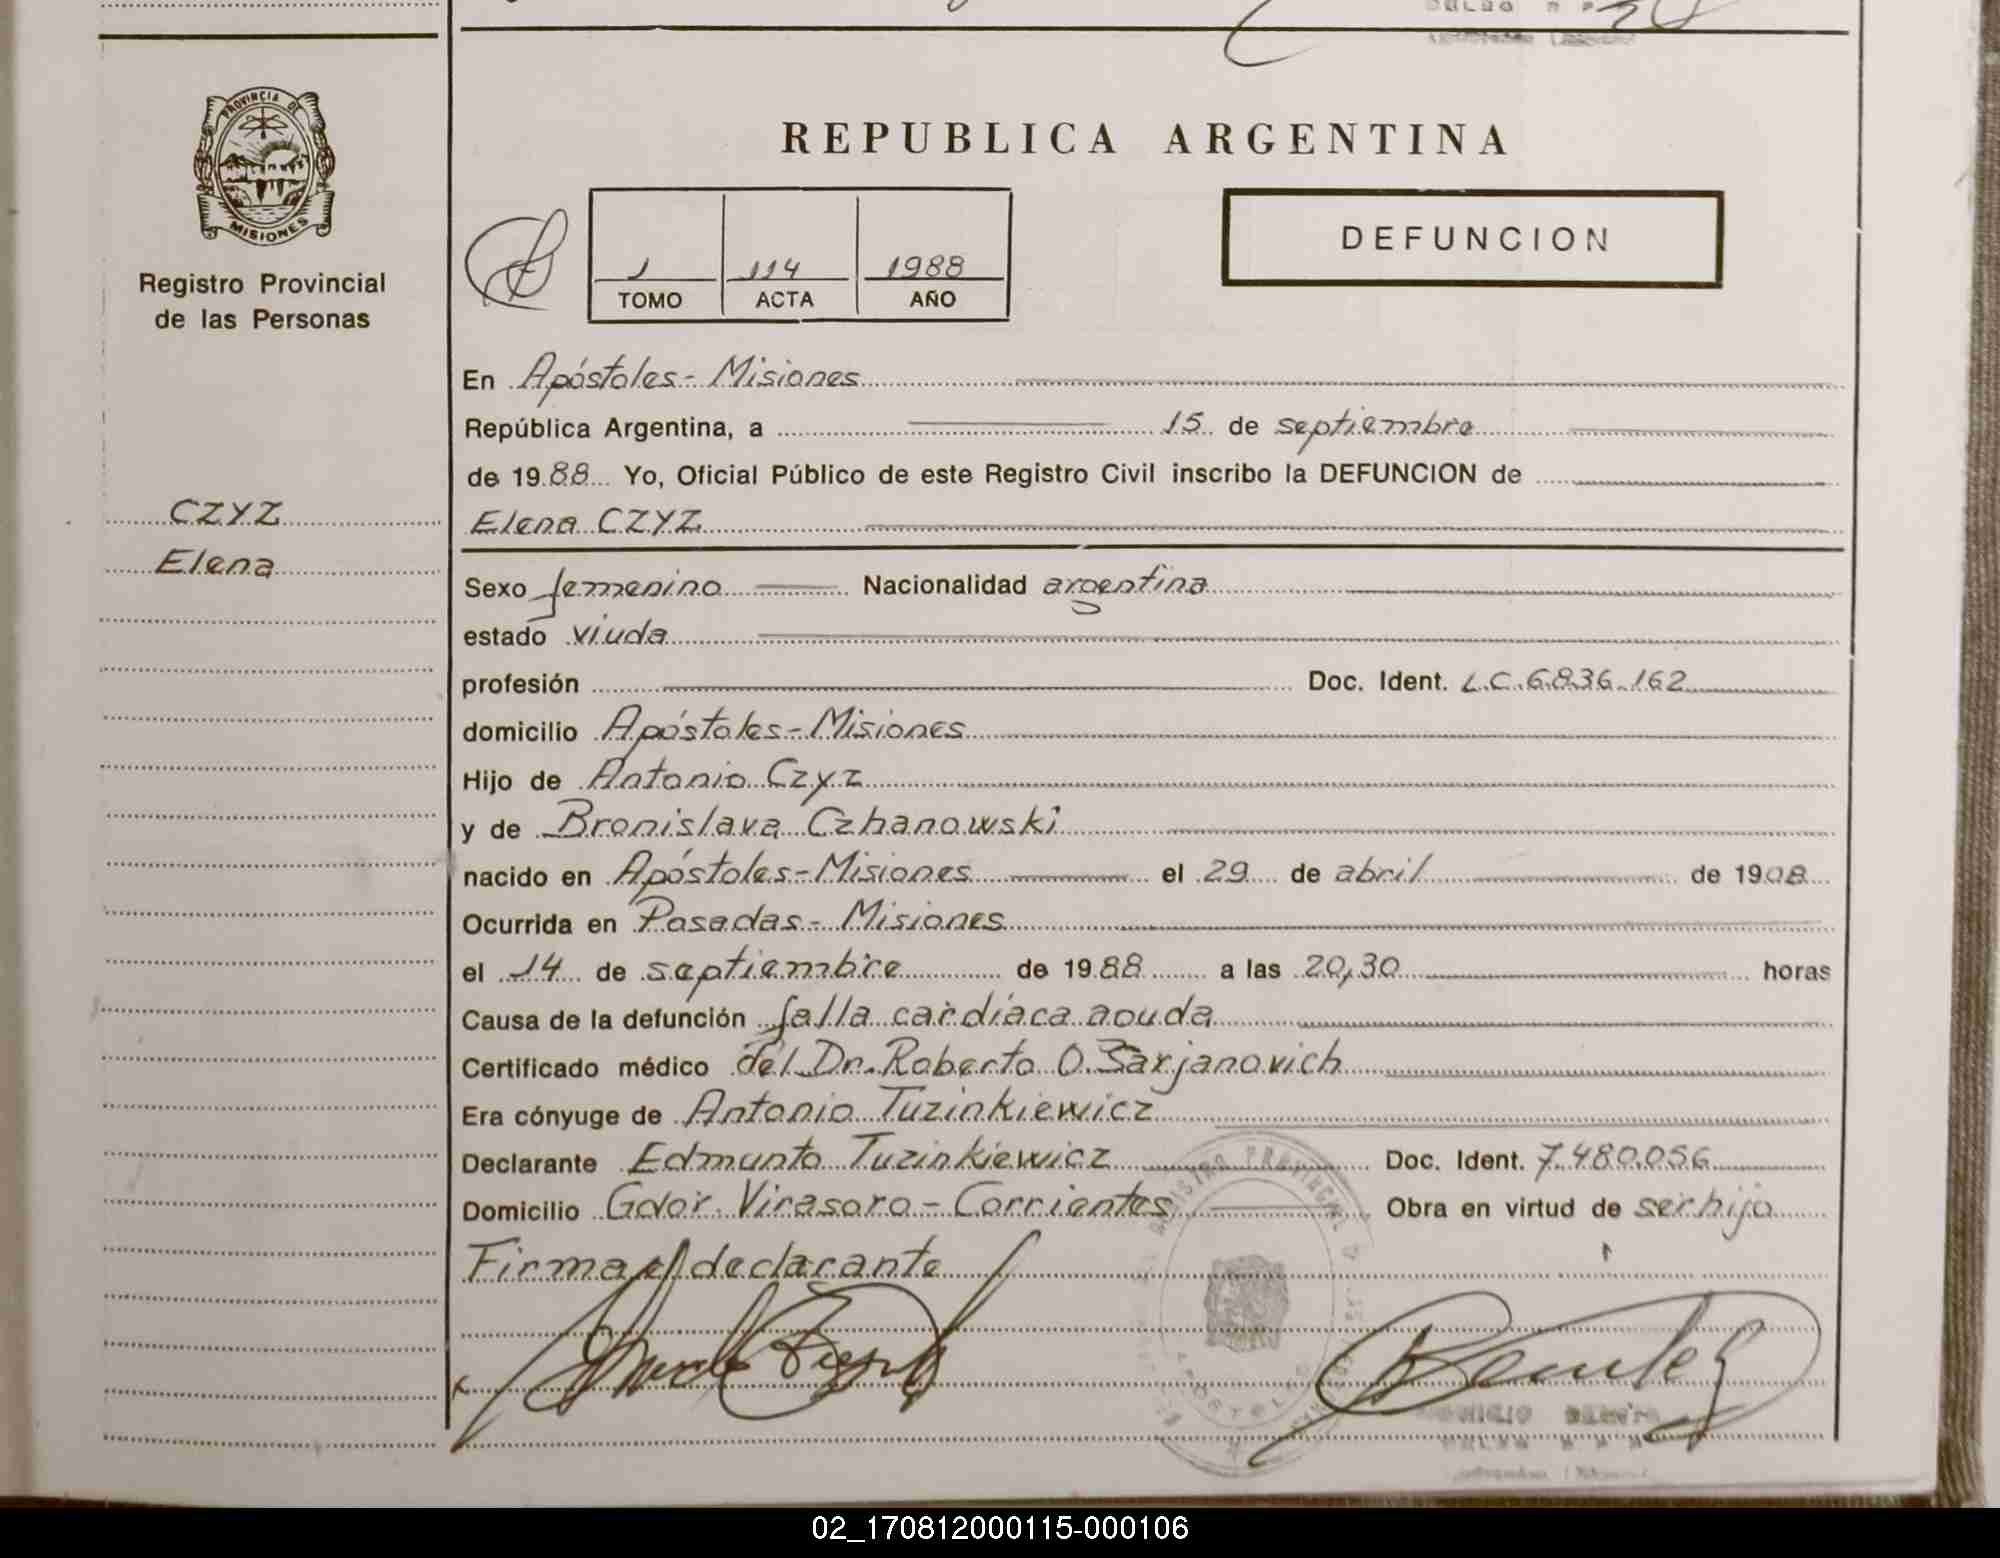 PROVINCIA DE
MISIONES
Registro Provincial
de las Personas
CZYZ
Elena
REPUBLICA ARGENTINA
1 114 1988
TOMO ACTA AÑO
DEFUNCION
En Apóstoles - Misiones
República Argentina, a 15 de septiembre
de 1988 Yo, Oficial Público de este Registro Civil inscribo la DEFUNCION de
Elena CZYZ
Sexo femenino Nacionalidad argentina
estado viuda
profesión Doc. Ident. L.C. 6.836.162
domicilio Apóstoles - Misiones
Hijo de Antonio Czyz
y de Bronislava Czhanowski
nacido en Apóstoles - Misiones el 29 de abril de 1908
Ocurrida en Posadas - Misiones
el 14 de septiembre de 1988 a las 20,30 horas
Causa de la defunción falla cardíaca aguda
Certificado médico del Dr. Roberto O.
Era cónyuge de Antonio Tuzinkiewicz
Declarante Edmunto Tuzinkiewicz Doc. Ident. 7.480.056
Domicilio Gdor. Virasoro - Corrientes Obra en virtud de ser hijo
Firma el declarante
02_170812000115-000106